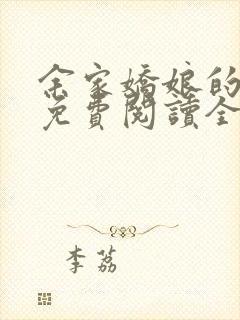 余家嬌娘的
免費閱讀全
李荔